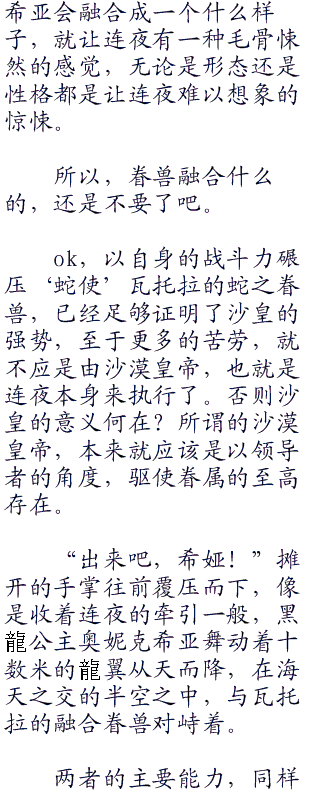 希亚会融合成一个什么样
子，就让连夜有一种毛骨悚
然的感觉，无论是形态还是
性格都是让连夜难以想象的
惊悚。
所以，眷兽融合什么
的，还是不要了吧。
ok，以自身的战斗力碾
压‘蛇使’瓦托拉的蛇之眷
兽，已经足够证明了沙皇的
强势，至于更多的苦劳，就
不应是由沙漠皇帝，也就是
连夜本身来执行了。否则沙
皇的意义何在？所谓的沙漠
皇帝，本来就应该是以领导
者的角度，驱使眷属的至高
存在。
“出来吧，希娅！”摊
开的手掌往前覆压而下，像
是收着连夜的牵引一般，黑
龍公主奥妮克希亚舞动着十
数米的龍翼从天而降，在海
天之交的半空之中，与瓦托
拉的融合眷兽对峙着。
两者的主要能力，同样